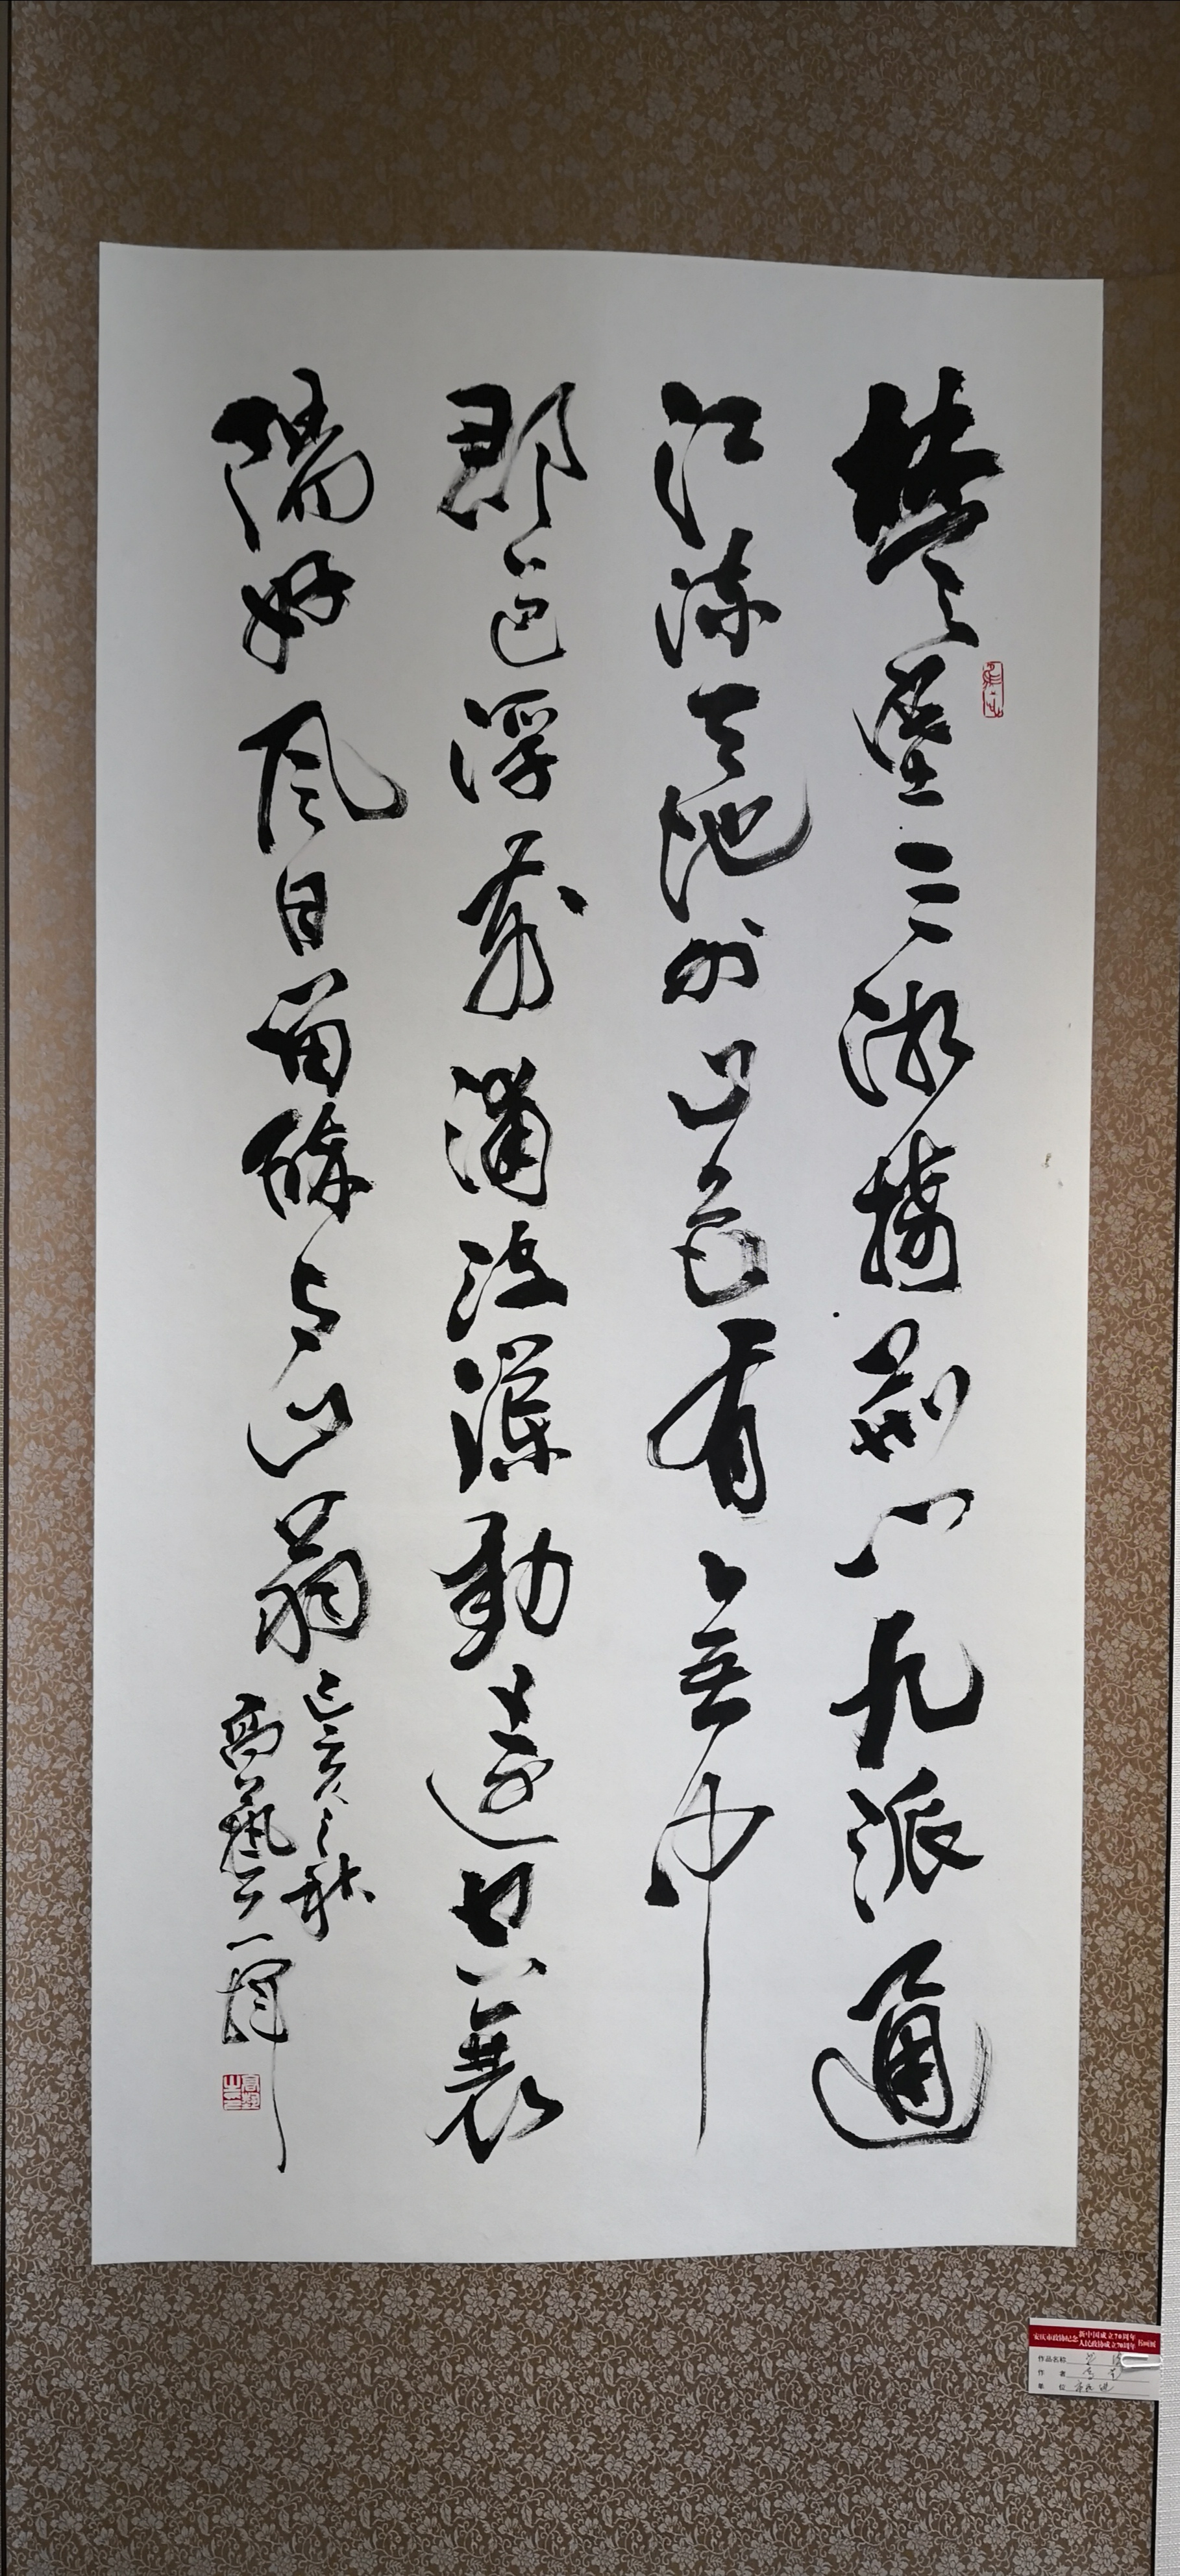 楚塞三湘接荆门九派通
江流天地外山色有無中
郡邑浮前浦波澜動遠空襄
陽好风日留醉与山翁
己亥之秋
高藝一揮
安庆市政协纪念新中国成立70周年人民政协成立70周年书画展
作品名称
作者
单位